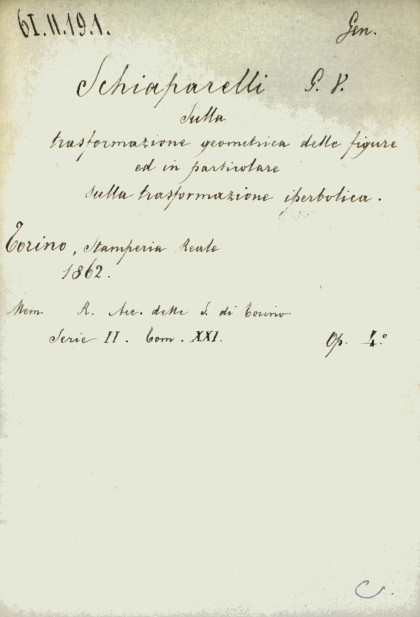 61.II.19.1. Gen.
Schiaparelli G. V.
Sulla
trasformazione geometrica delle figure
ed in particolare
sulla trasformazione iperbolica.
Torino, Stamperia Reale
1862.
Mem. R. Acc. delle S. di Torino
Serie II. Tom. XXI. Op. 4.º
C.